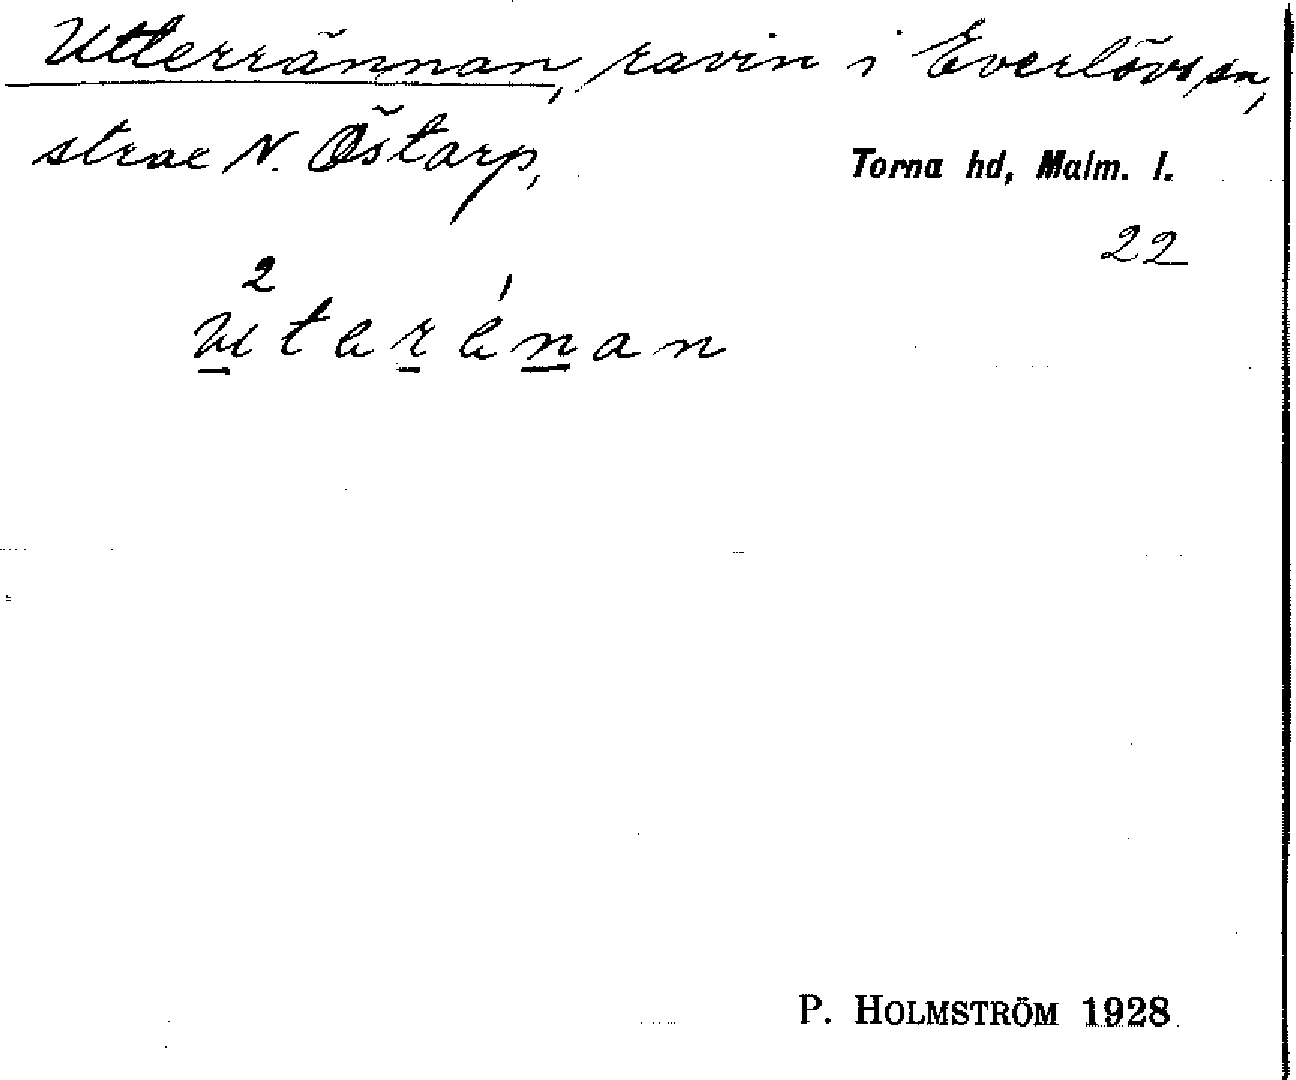 Utterrännan, ravin i Everlövs sn,
strax N. Östarp,
Torna hd, Malm. l.
22
P. HOLMSTRÖM 1928